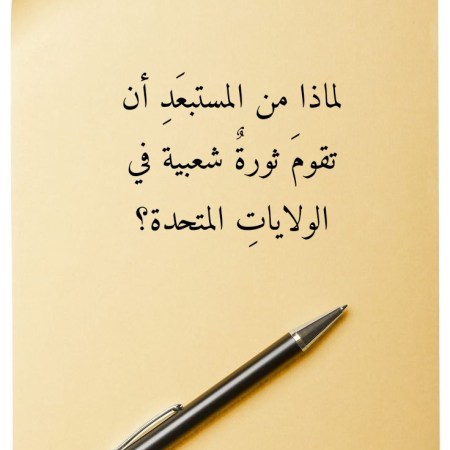 لماذا من المستبعَدِ أن
تقومَ ثورةٌ شعبية في
الولاياتِ المتحدة؟